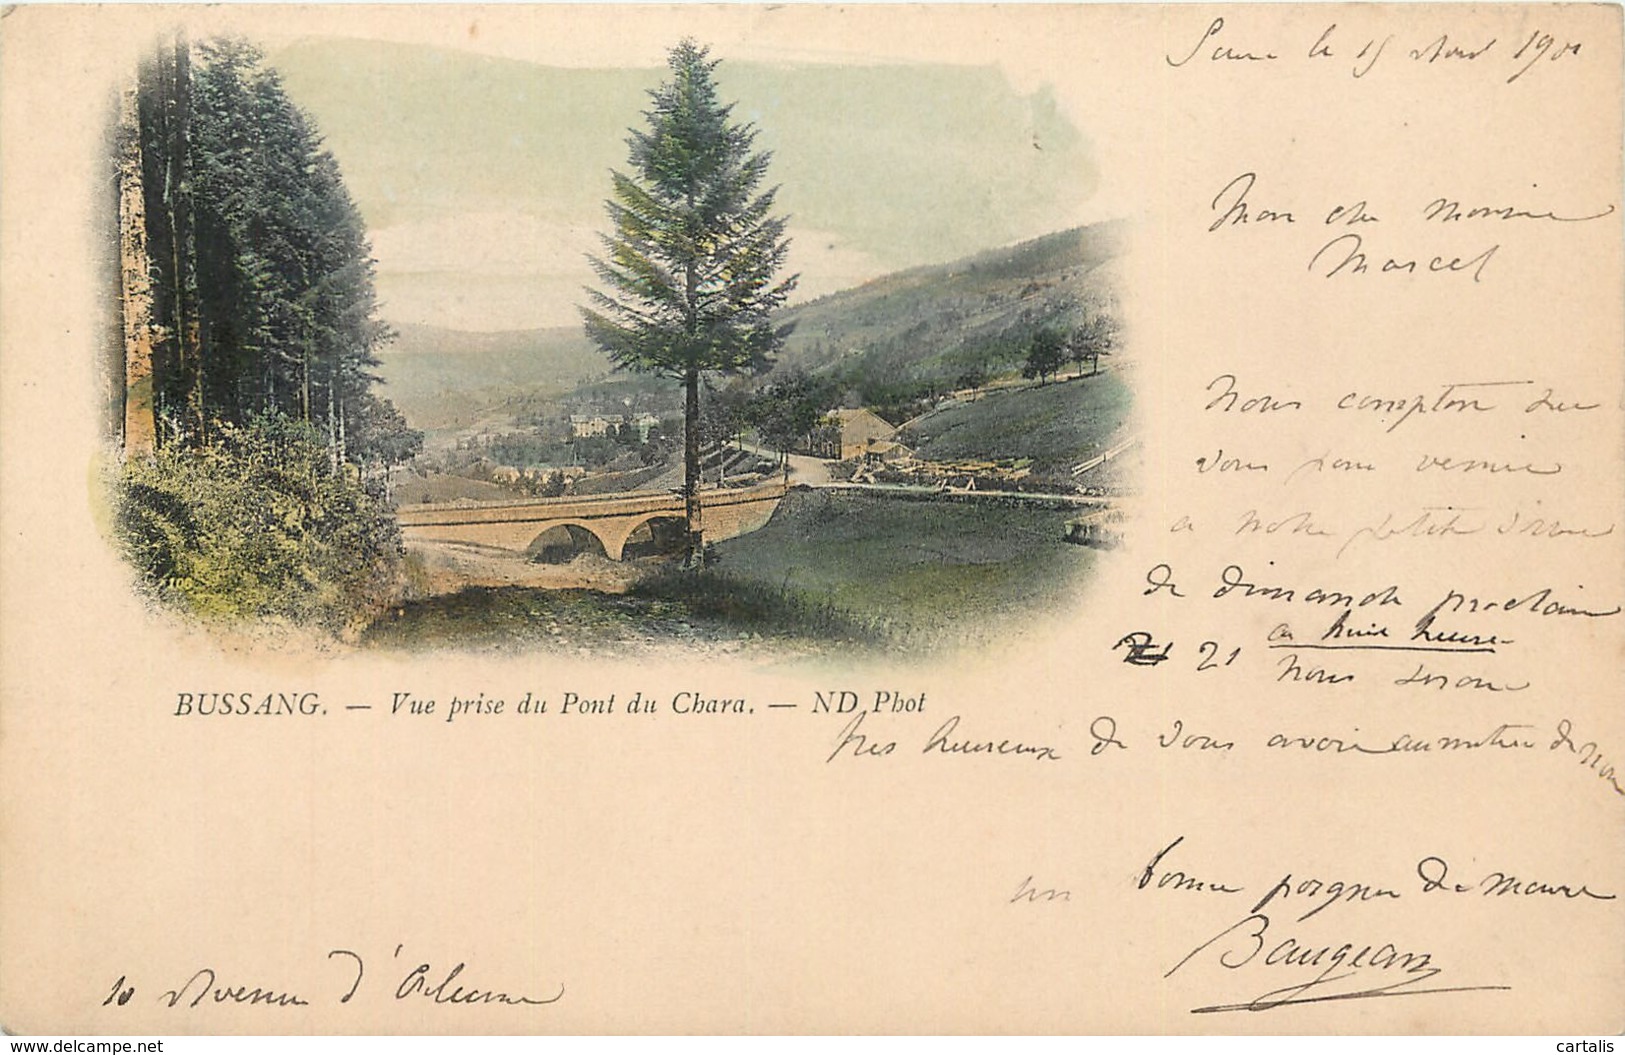 le 15 Avril 1901
Mon cher Monsieur
Marcel
Nous comptons sur
vous pour venir
a notre petite
de dimanche prochain
a huit heures
21 nous serons
tres heureux de vous avoir au milieu de nous
une bonne poignée de main
Baugean
10 Avenue d'Orléans
BUSSANG. — Vue prise du Pont du Chara. — ND Phot
106
www.delcampe.net
cartalis